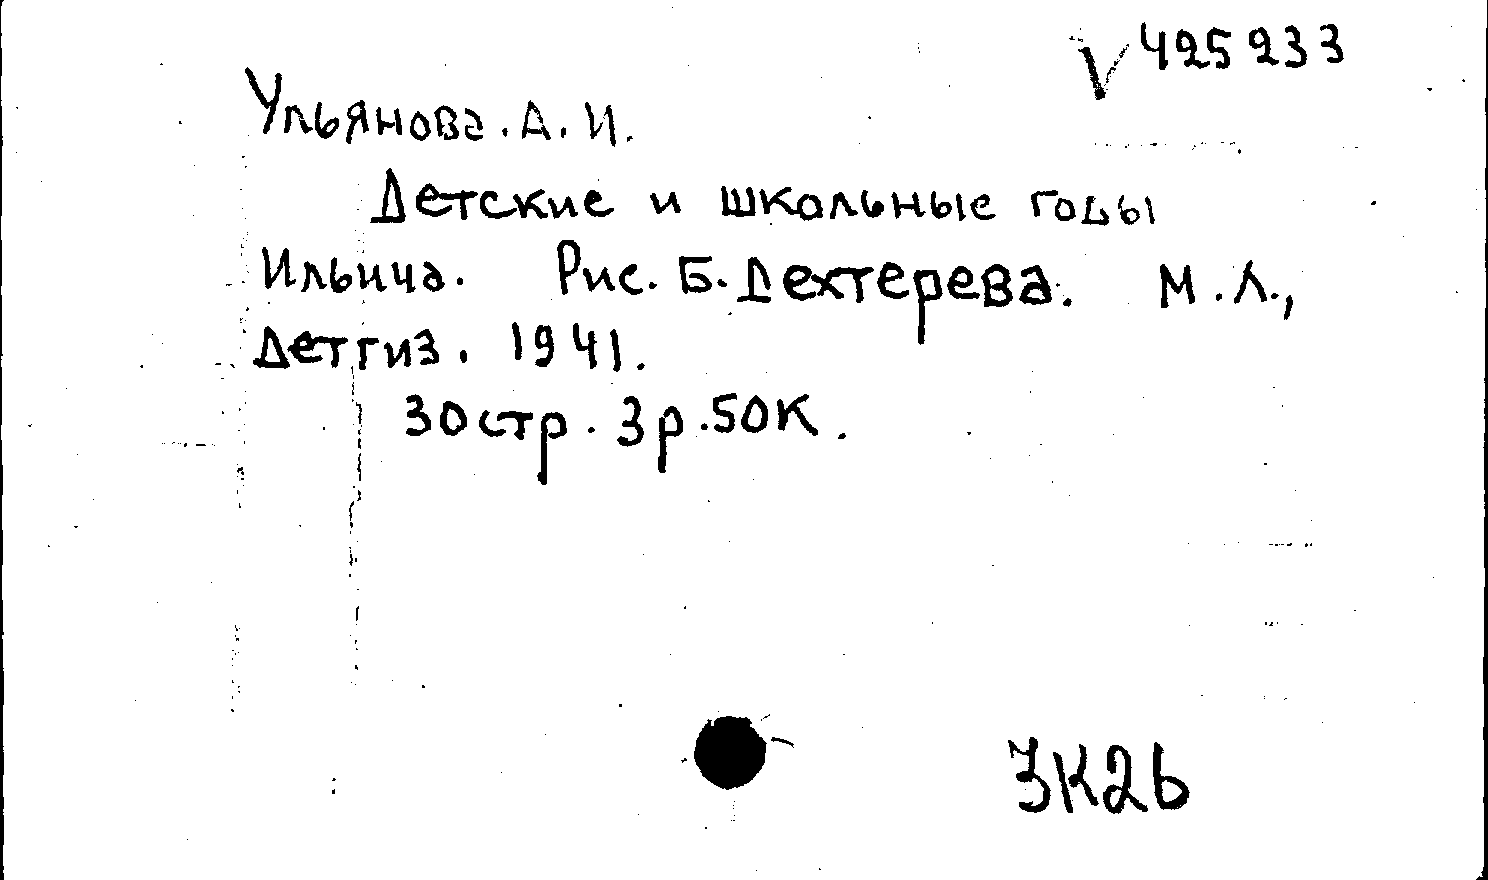 V 425233
Ульянова. А. И.
Детские и школьные годы
Ильича. Рис. Б. Дехтерева. М. Л.,
Детгиз. 1941.
30 стр. 3 р. 50 К.
3К26